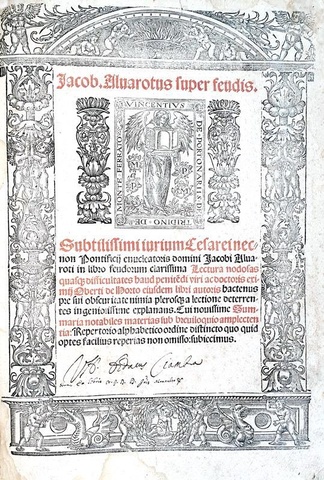 Jacob. Aluarotus super feudis.
VINCENTIVS
DE·PORTONARIIS·
DE·TRIDINO·
DE·MONTE·FERRATO
Subtilissimi iurium Cesarei nec
non Pontificij enucleatoris domini Jacobi Alua-
roti in libro feudorum clarissima Lectura nodosas
quasq; difficultates haud peniten̄di viri ac doctoris exi-
mij Oberti de Horto eiusdem libri autoris hactenus
pre sui obscuritate nimia plerosq; a lectione deterren-
tes ingeniosissime explanans. Cui nouissime Sum-
maria notabiles materias sub breuiloquio amplecten-
tia: Repertorio alphabetico ordine distincto quo quid
optes facilius reperias non omisso: subiecimus.